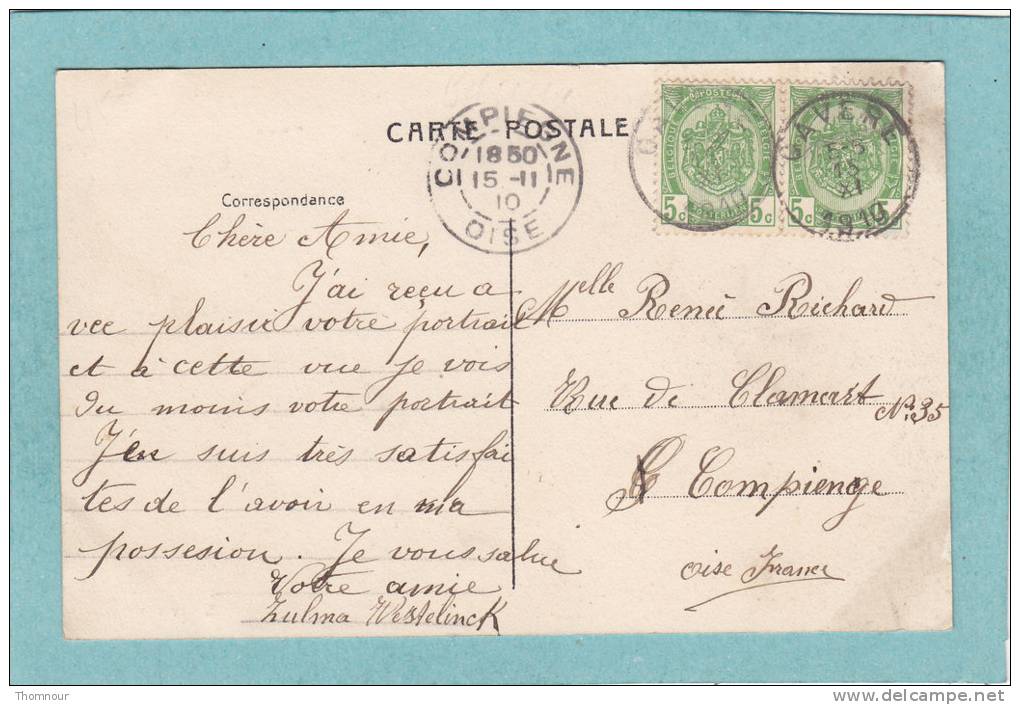 CARTE POSTALE
COMPIEGNE
1850
15 -11
10
OISE
GAVERE
13
XI
1910
5c 5c
5c 5
BELGIQUE
Correspondance
Chère Amie,
J'ai reçu a
vec plaisir votre portrait
et à cette vue je vois
du moins votre portrait
J'en suis très satisfai
tes de l'avoir en ma
possesion. Je vous salue
Votre amie
Zulma Westelinck
Melle Reneé Richard
Rue de Clamart No. 35
Compienge
Oise France
Thomnour
www.delcampe.net